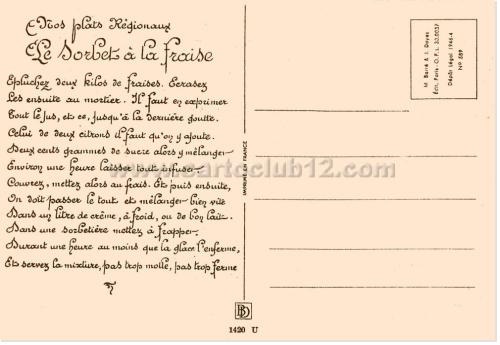 Nos plats Régionaux
Le Sorbet à la fraise
Epluchez deux kilos de fraises. Ecrasez
Les ensuite au mortier. Il faut en exprimer
Tout le jus, et ce, jusqu'à la dernière goutte.
Celui de deux citrons il faut qu'on y ajoute.
Deux cents grammes de sucre alors y mélanger
Environ une heure laisser tout infuser
Couvrez, mettez alors au frais. Et puis ensuite,
On doit passer le tout et mélanger bien vite
Dans un litre de crème, à froid, ou de bon lait.
Dans une sorbetière mettez à frapper.
Durant une heure au moins que la glace l'enferme,
Et servez la mixture, pas trop molle, pas trop ferme
www.cartoclub12.com
IMPRIMÉ EN FRANCE
M. Barré & J. Dayez
Édit. Paris - O.P.L. 30.0037
Dépôt Légal 1946-4
No
BD
1420 U